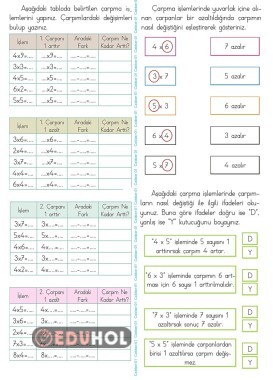 Aşağıdaki tabloda belirtilen çarpma iş-
lemlerini yapınız. Çarpımlardaki değişimleri
bulup yazınız.
İşlem 1. Çarpanı 1 arttır Aradaki Fark Çarpım Ne Kadar Arttı?
4x9=.... ....x9=.... ....-....=....
3x3=.... ....x3=.... ....-....=....
4x5=.... ....x5=.... ....-....=....
6x2=.... ....x2=.... ....-....=....
5x5=.... ....x5=.... ....-....=....
İşlem 1. Çarpanı 1 azalt Aradaki Fark Çarpım Ne Kadar Azaldı?
3x6=.... ....x6=.... ....-....=....
2x4=.... ....x4=.... ....-....=....
3x7=.... ....x7=.... ....-....=....
4x4=.... ....x4=.... ....-....=....
6x4=.... ....x4=.... ....-....=....
İşlem 2. Çarpanı 1 arttır Aradaki Fark Çarpım Ne Kadar Arttı?
3x7=.... 3x.... ....-....=....
5x4=.... 5x.... ....-....=....
4x6=.... 4x.... ....-....=....
3x9=.... 3x.... ....-....=....
4x2=.... 4x.... ....-....=....
İşlem 2. Çarpanı 1 azalt Aradaki Fark Çarpım Ne Kadar Azaldı?
4x5=.... 4x.... ....-....=....
3x6=....
2x4=....
7x3=....
8x4=.... 8x.... ....-....=....
EDUHOL
Çarpma işlemlerinde yuvarlak içine alı-
nan çarpanlar bir azaltıldığında çarpımın
nasıl değiştiğini eşleştirerek gösteriniz.
4 x 6 7 azalır
3 x 7 5 azalır
5 x 3 6 azalır
6 x 4 3 azalır
5 x 7 4 azalır
Aşağıdaki çarpma işlemlerinde çarpım-
ların nasıl değiştiği ile ilgili ifadeleri oku-
yunuz. Buna göre ifadeler doğru ise "D",
yanlış ise "Y" kutucuğunu boyayınız.
"4 x 5" işleminde 5 sayısını 1
arttırırsak çarpım 4 artar.
D
Y
"6 x 3" işleminde çarpımın 6 art-
ması için 6 sayısı 1 arttırılmalıdır.
D
Y
"7 x 3" işleminde 7 sayısını 1
azaltırsak sonuç 7 azalır.
D
Y
"5 x 5" işleminde çarpanlardan
birisi 1 azaltılırsa çarpım değiş-
mez.
D
Y